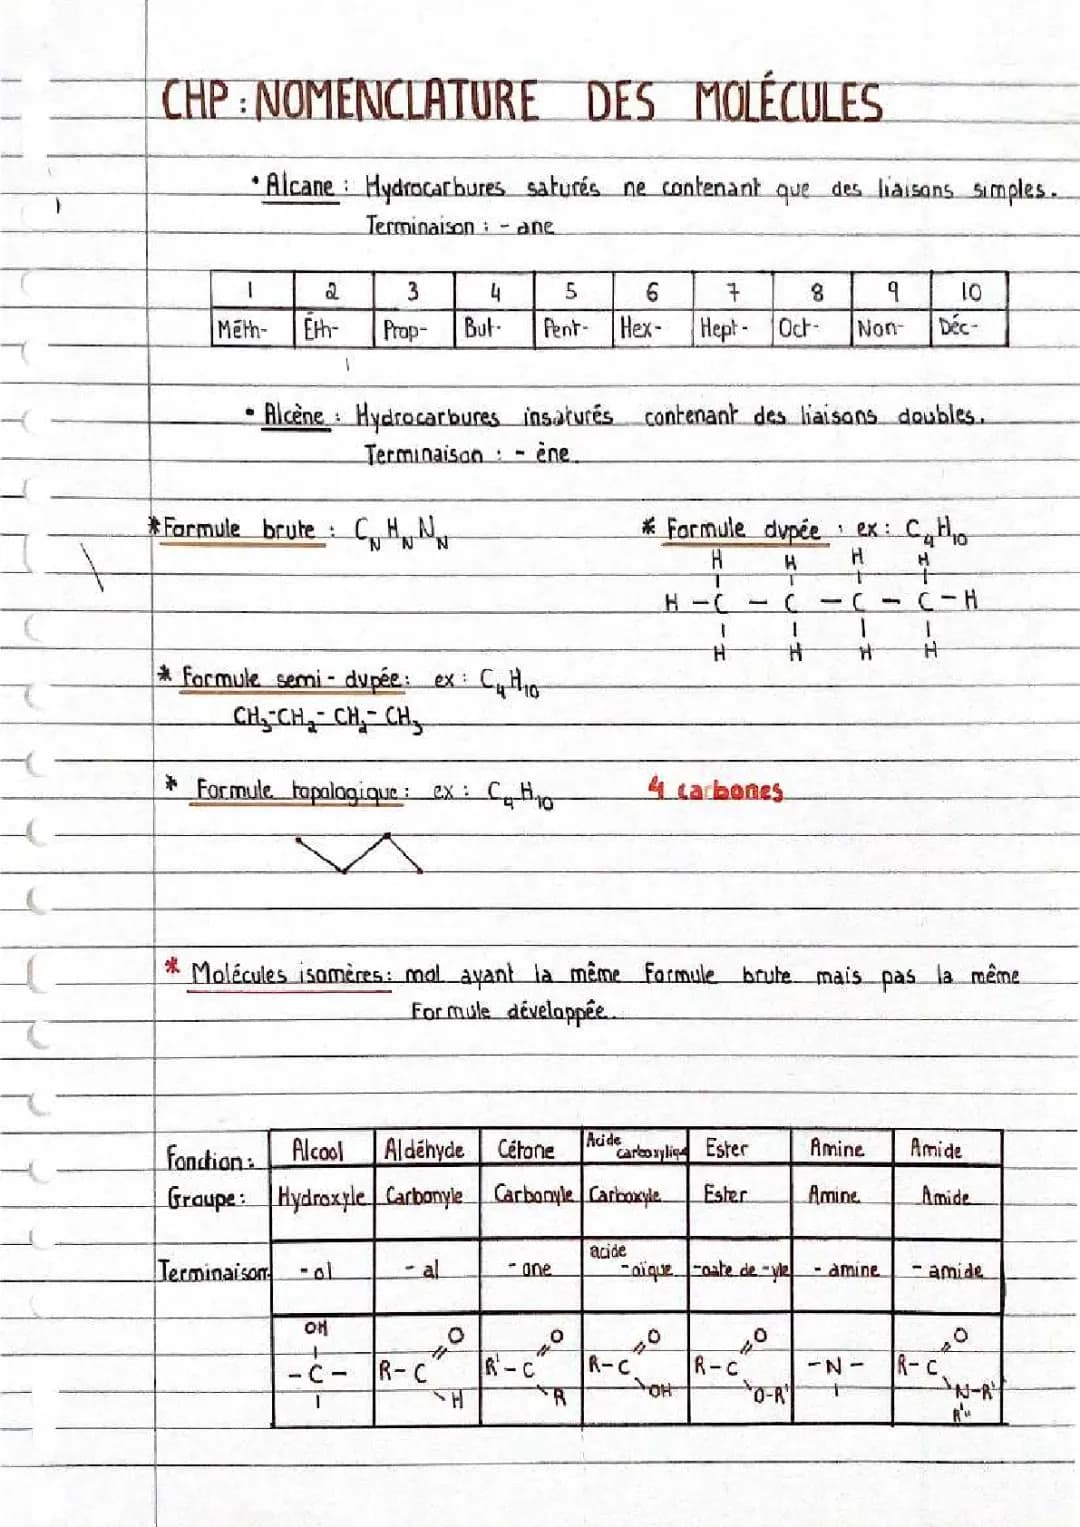 CHP : NOMENCLATURE DES MOLÉCULES
• Alcane : Hydrocarbures saturés ne contenant que des liaisons simples.
Terminaison : - ane
1 2 3 4 5 6 7 8 9 10
Méth- Éth- Prop- But- Pent- Hex- Hept- Oct- Non- Déc-
• Alcène : Hydrocarbures insaturés contenant des liaisons doubles.
Terminaison : - ène
* Formule brute : C_N H_N N_N
* Formule dvpée : ex : C₄H₁₀
H H H H
H - C - C - C - C - H
H H H H
* Formule semi - dvpée : ex : C₄H₁₀
CH₃-CH₂-CH₂-CH₃
* Formule topologique : ex : C₄H₁₀ 4 carbones
* Molécules isomères : mol ayant la même formule brute mais pas la même
Formule développée.
Fonction : Alcool Aldéhyde Cétone Acide carboxylique Ester Amine Amide
Groupe : Hydroxyle Carbonyle Carbonyle Carboxyle Ester Amine Amide
Terminaison - ol - al - one acide -oïque -oate de -yle - amine - amide
OH O O O O O
- C - R - C R' - C R - C R - C - N - R - C
H R OH O-R' N-R'
R"